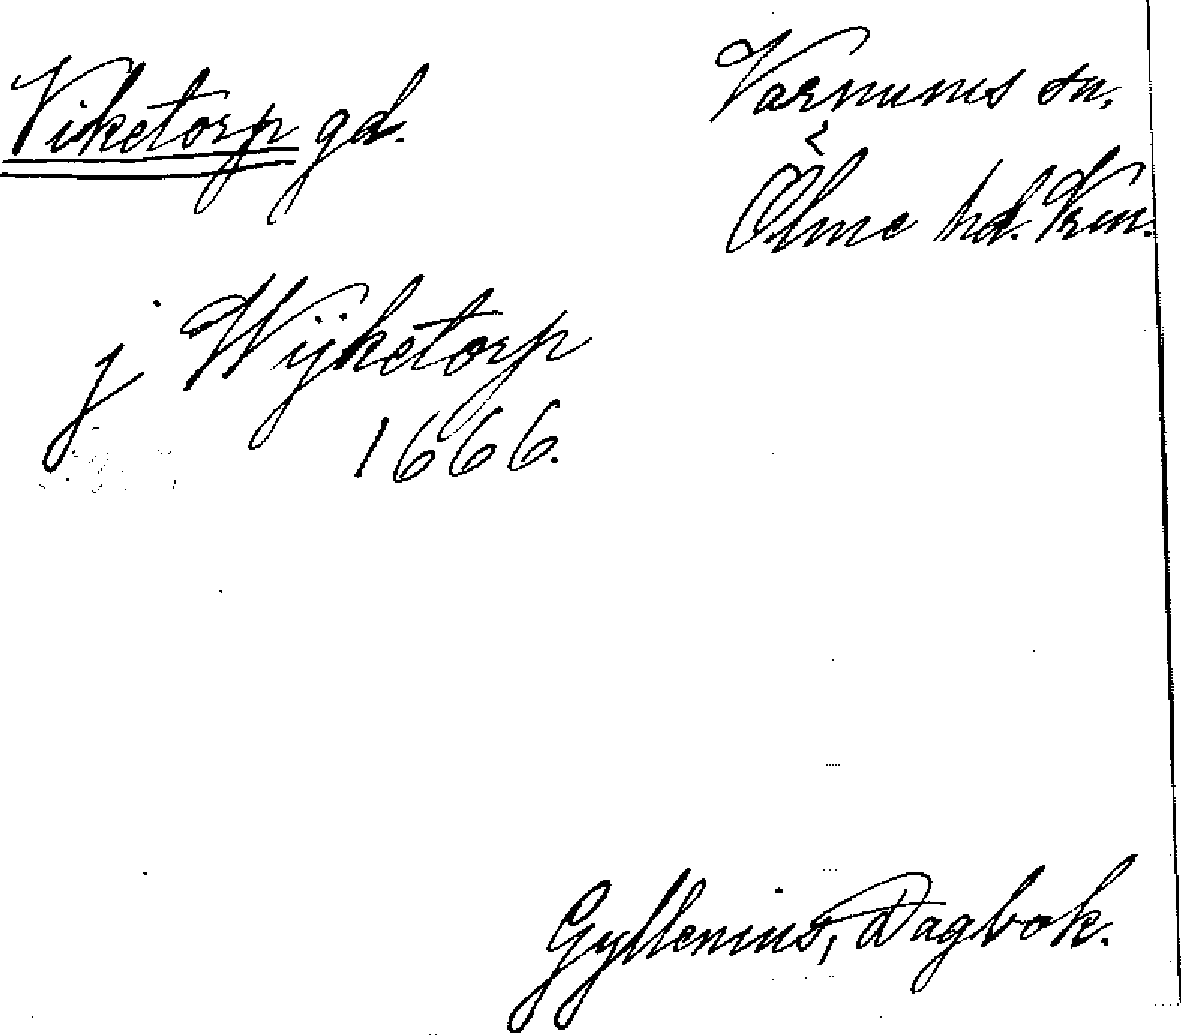 Viketorp gd.
Varnums sn.
Ölme hd. Vrm.
j Wijketorp
1666.
Gyllenius, Dagbok.